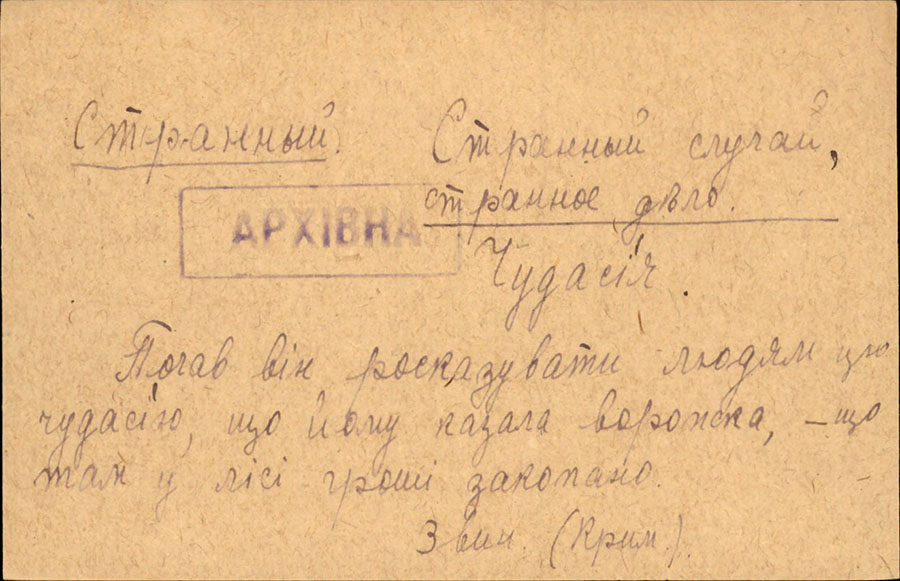 Странный. Странный случай,
странное дѣло.
АРХІВНА
Чудасія.
Почав він росказувати людям цю
чудасію, що йому казала ворожка, – що
там у лісі гроші закопано.
Звин. (Крим.).